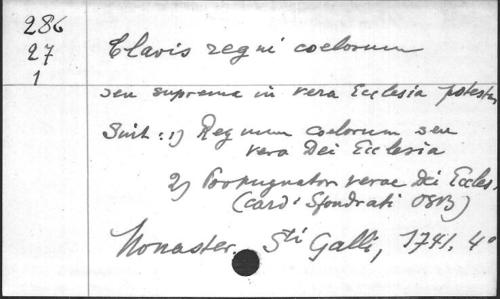 286
27
1
Clavis regni coelorum
seu suprema in vera Ecclesia potestas
Suit: 1) Regnum coelorum seu
vera Dei Ecclesia
2) Propugnator verae Dei Eccles.
(Card: Sfondrati OSB)
Monaster. Sti Galli, 1741. 4°